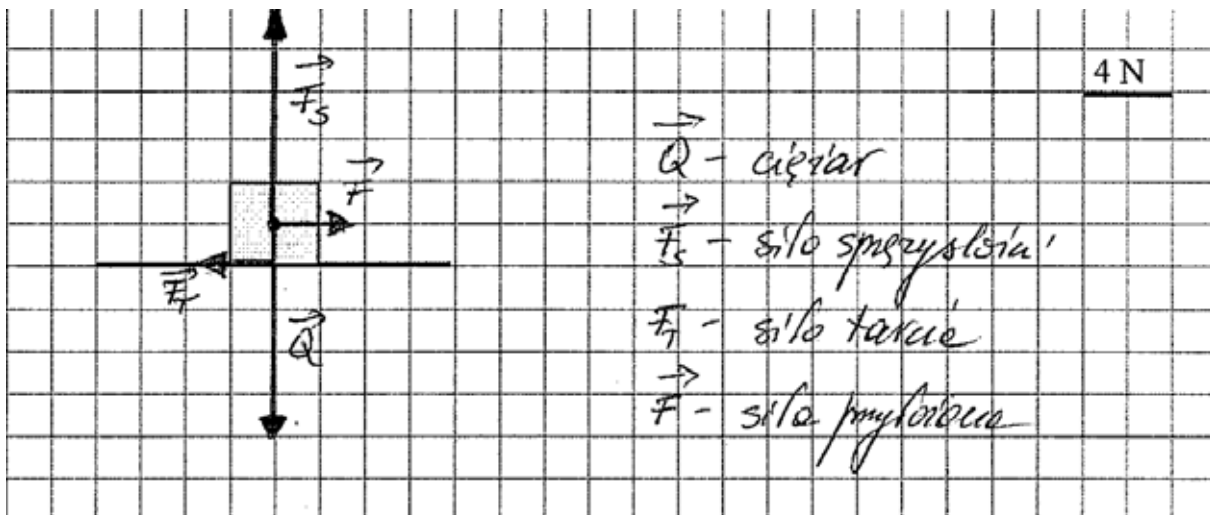 4 N
F⃗s
F⃗
F⃗T
Q⃗
Q⃗ - ciężar
F⃗s - siła sprężystości
FT - siła tarcia
F⃗ - siła przyłożona